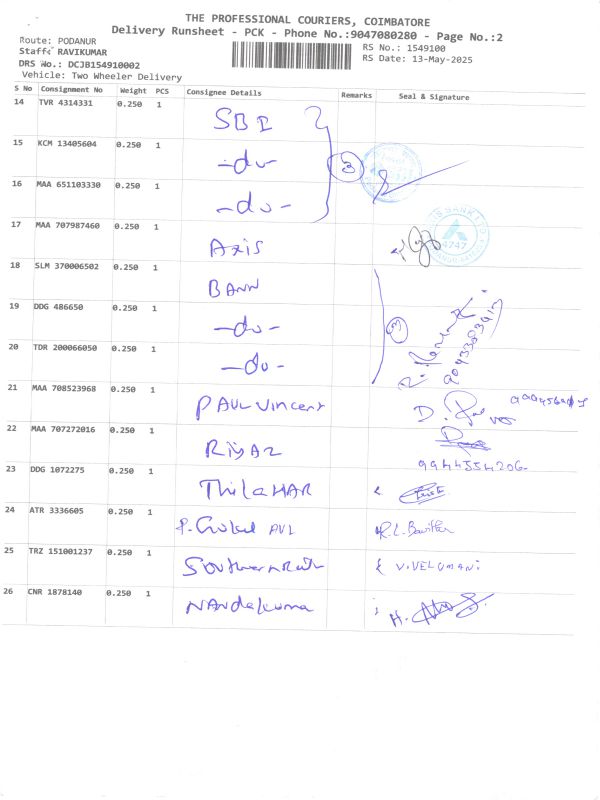 THE PROFESSIONAL COURIERS, COIMBATORE
Delivery Runsheet - PCK - Phone No.:9047080280 - Page No.:2
Route: PODANUR
RS No.: 1549100
Staff: RAVIKUMAR
RS Date: 13-May-2025
DRS No.: DCJB154910002
Vehicle: Two Wheeler Delivery
S No Consignment No Weight PCS Consignee Details Remarks Seal & Signature
14 TVR 4314331 0.250 1 SBI
15 KCM 13405604 0.250 1 -do- 3
16 MAA 651103330 0.250 1 -do-
17 MAA 707987460 0.250 1 Axis 4747
18 SLM 370006502 0.250 1 BANN
19 DDG 486650 0.250 1 -do- 3
20 TDR 200066050 0.250 1 -do-
21 MAA 708523968 0.250 1 PAUL Vincent D.
22 MAA 707272016 0.250 1 Riyaz
9944554206
23 DDG 1072275 0.250 1 ThilaHAR
24 ATR 3336605 0.250 1 P. Gokul R.L.
25 TRZ 151001237 0.250 1 Southern V.VELUMANI
26 CNR 1878140 0.250 1 NANdakuma H.